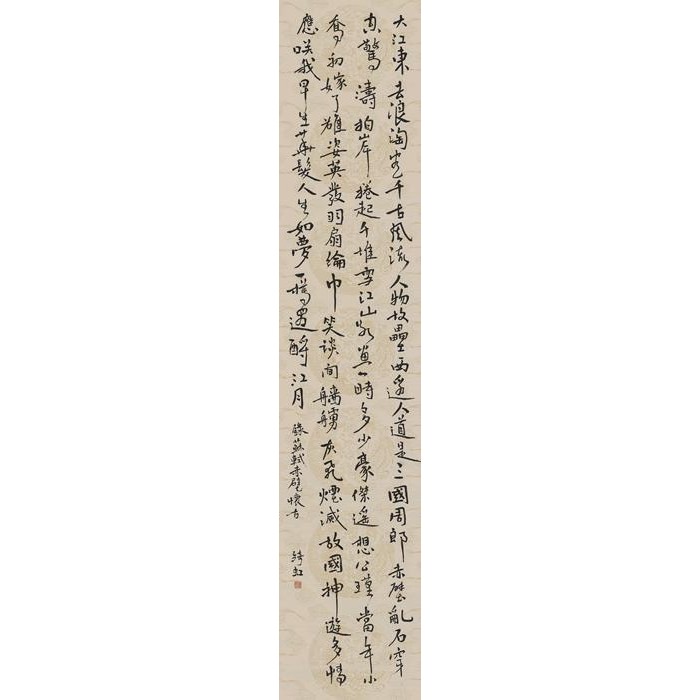 大江東去浪淘盡千古風流人物故壘西邊人道是三國周郎赤壁亂石穿
空驚濤拍岸捲起千堆雪江山如畫一時多少豪傑遙想公瑾當年小
喬初嫁了雄姿英發羽扇綸巾笑談間檣艣灰飛煙滅故國神遊多情
應咲我早生華髮人生如夢一樽還酹江月
錄蘇軾赤壁懷古